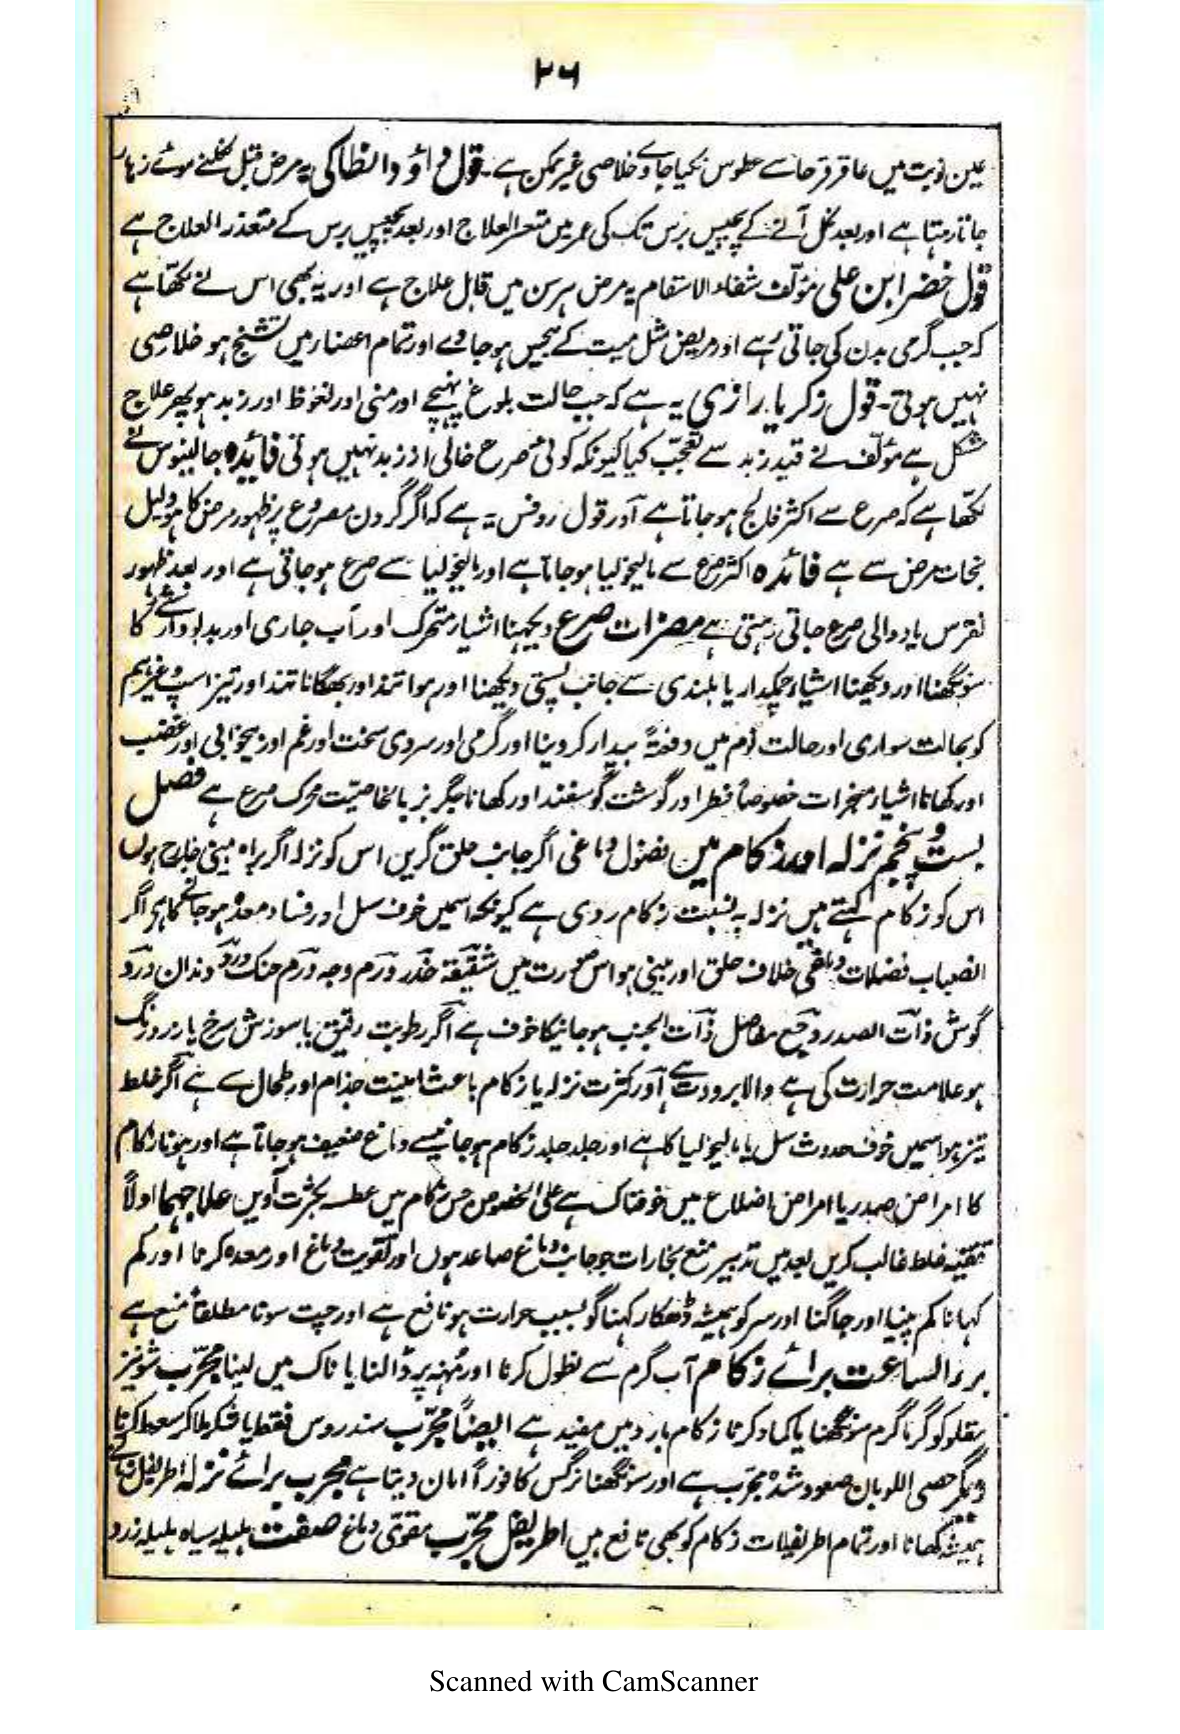 ۲۶
عین نوبت میں عاقرقرحا سے عطوس نکیا جاوے خلاصی غیر ممکن ہے۔ قول داؤد انطاکی یہ مرض قبل نکلنے موئے زہار
جاتا رہتا ہے اور بعد نکل آنے کے پچیس برس تک کی عمر میں متعسر العلاج اور بعد پچیس برس کے متعذر العلاج ہے
قول خضر ابن علی مؤلف شفاء الاسقام یہ مرض ہر سن میں قابل علاج ہے اور یہ بھی اس نے لکھا ہے
کہ جب گرمی بدن کی جاتی رہے اور مریض مثل میت کے بیحس ہو جاوے اور تمام اعضا میں تشنج ہو خلاصی
نہیں ہوتی۔ قول زکریا رازی یہ ہے کہ جب حالت بلوغ پہنچے اور منی اور نعوظ اور زبد ہو پھر علاج
مشکل ہے مؤلف نے قید زبد سے تعجب کیا کیونکہ کوئی صرع خالی از زبد نہیں ہوتی فائدہ جالینوس نے
لکھا ہے کہ صرع سے اکثر فالج ہو جاتا ہے اور قول روفس یہ ہے کہ اگر گردن مصروع پر ظہور مرض کا ہو دلیل
نجات مرض سے ہے فائدہ اکثر صرع سے مالیخولیا ہو جاتا ہے اور مالیخولیا سے صرع ہو جاتی ہے اور بعد ظہور
نقرس یا دوالی صرع جاتی رہتی ہے مضرات صرع دیکھنا اشیاء متحرک اور آب جاری اور بدبودار شے کا
سونگھنا اور دیکھنا اشیاء چمکدار یا بلندی سے جانب پستی دیکھنا اور ہوا تند اور بھگانا تند اور تیز اسپ وغیرہم
کو بحالت سواری اور حالت نوم میں دفعۃً بیدار کر دینا اور گرمی اور سردی سخت اور غم اور بیخوابی اور غضب
اور کھانا اشیاء مبخرات خصوصاً فطر اور گوشت گوسفند اور کھانا جگر بز بالخاصیت محرک صرع ہے فصل
بست و پنجم نزلہ اور زکام میں فضول دماغی اگر جانب حلق گریں اس کو نزلہ اگر براہ بینی خارج ہوں
اس کو زکام کہتے ہیں نزلہ بہ نسبت زکام ردی ہے کیونکہ اسمیں خوف سل اور فساد معدہ ہو جانے کا ہے اگر
انصباب فضلات دماغی خلاف حلق اور بینی ہو اس صورت میں شقیقہ خدر ورم وجہ ورم حنک درد دندان درد
گوش ذات الصدر وجع مفاصل ذات الجنب ہو جانیکا خوف ہے اگر رطوبت رقیق با سوزش سرخ یا زرد رنگ
ہو علامت حرارت کی ہے والا برودت ہے اور کثرت نزلہ یا زکام باعث امنیت جذام اور طحال سے ہے اگر خلط
تیز ہو اسمیں خوف حدوث سل یا مالیخولیا کا ہے اور جلد جلد زکام ہو جانیسے دماغ ضعیف ہو جاتا ہے اور ہونا زکام
کا امراض صدر یا امراض اضلاع میں خوفناک ہے علی الخصوص جس زکام میں عطسہ بکثرت آویں علاجہما اولاً
تنقیہ خلط غالب کریں بعد میں تدبیر منع بخارات جو جانب دماغ صاعد ہوں اور تقویت دماغ اور معدہ کرنا اور کم
کہانا کم پینا اور جاگنا اور سر کو ہمیشہ ڈھکا رکہنا گو بسبب حرارت ہو نافع ہے اور چت سونا مطلقاً منع ہے
برء الساعت برائے زکام آب گرم سے نطول کرنا اور مُنہ پر ڈالنا یا ناک میں لینا مجرب شونیز
مقلو کو گرما گرم سونگھنا یا کماد کرنا زکام بارد میں مفید ہے ایضاً مجرب سندروس فقط یا شکر ملا کر سعوط کرنا
دیگر حصی اللوبان صعود شدہ مجرب ہے اور سونگھنا نرگس کا فوراً امان دیتا ہے مجرب برائے نزلہ اطریفل
ہمیشہ کھانا اور تمام اطریفلات زکام کو بھی نافع ہیں اطریفل مجرب مقوی دماغ صفت ہلیلہ سیاہ ہلیلہ زرد
Scanned with CamScanner